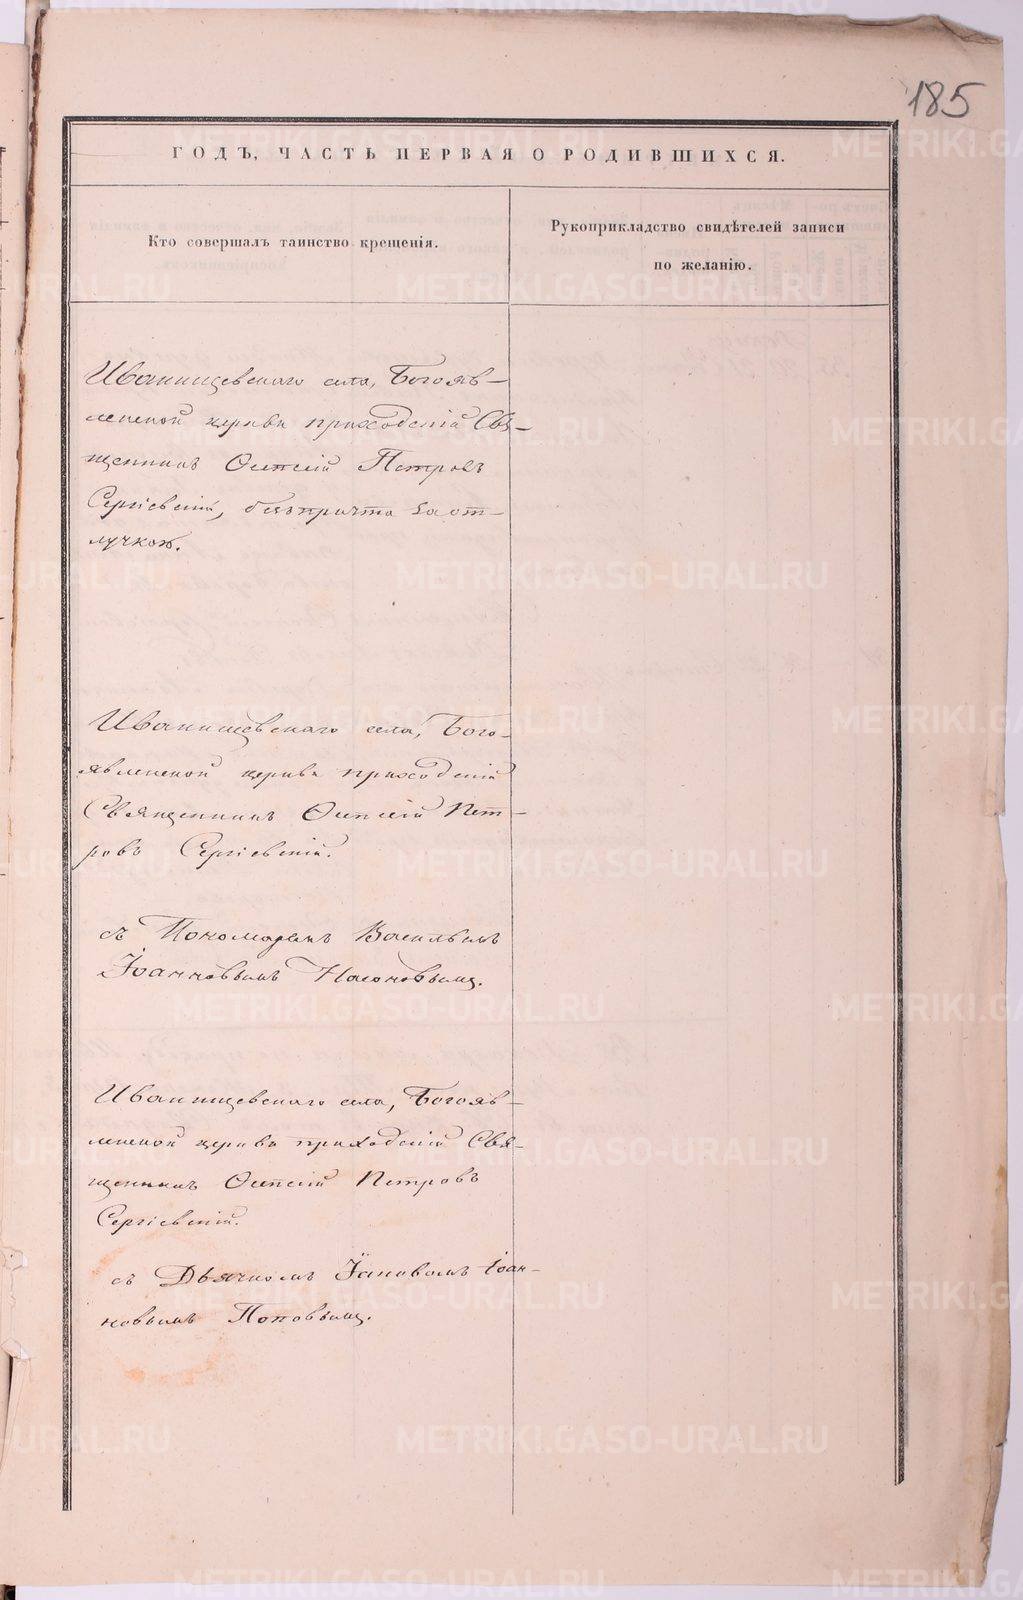 185
ГОДЪ, ЧАСТЬ ПЕРВАЯ О РОДИВШИХСЯ.
Кто совершалъ таинство крещенія.
Рукоприкладство свидѣтелей записи
по желанію.
Иванищевскаго села, Богояв-
ленской церкви приходскій Свя-
щенникъ Петровъ
Сергіевскій, безъ причта за от-
лучкою.
Иванищевскаго села, Бого-
явленской церкви приходскій
Священникъ Пет-
ровъ Сергіевскій.
съ Пономаремъ Васильемъ
Іоанновымъ
Иванищевскаго села, Богояв-
ленской церкви приходскій Свя-
щенникъ Петровъ
Сергіевскій.
съ Дьячкомъ Іаковомъ Іоан-
новымъ Поповымъ.
METRIKI.GASO-URAL.RU